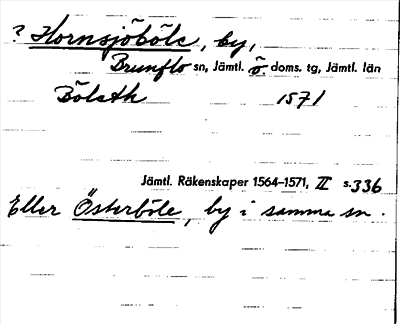 ? Hornsjöböle, by,
Brunflo sn, Jämtl. ö. doms. tg, Jämtl. län
Bölsth 1571
Jämtl. Räkenskaper 1564–1571, II s. 336
Eller Österböle, by i samma sn.